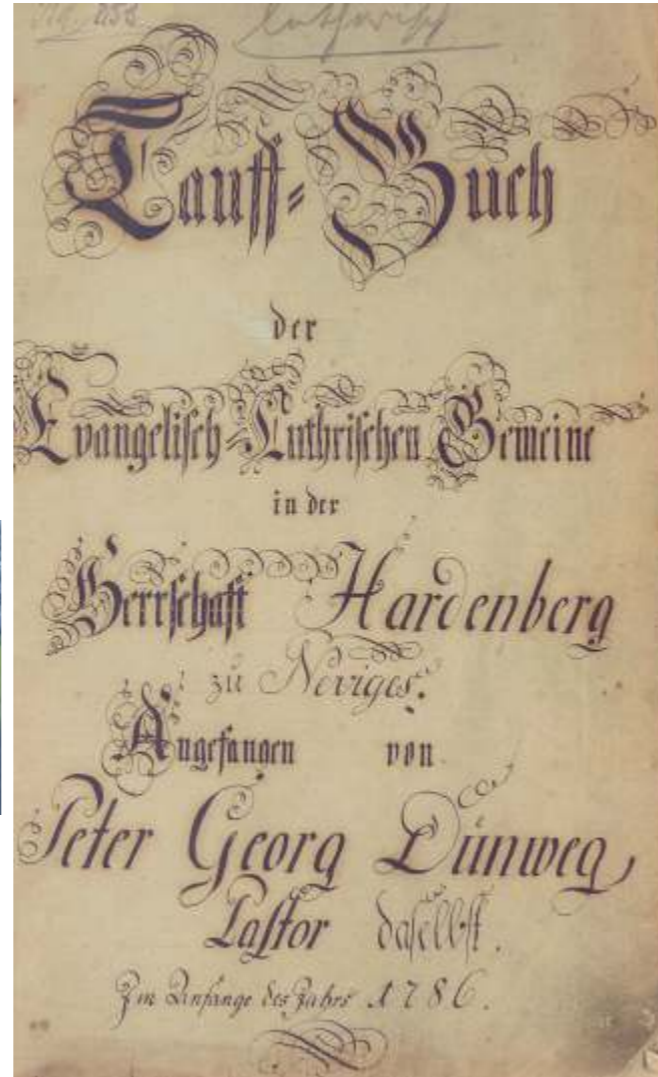 lutherisch
Tauff-Buch
der
Evangelisch-Luthrischen Gemeine
in der
Herrschaft Hardenberg
zu Neviges.
Angefangen von
Peter Georg Dünweg,
Pastor daselbst.
Im Anfange des Jahrs 1786.